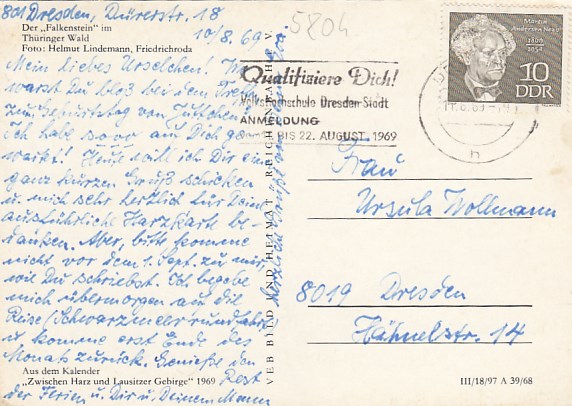 801 Dresden, Dürerstr. 18
Der „Falkenstein" im
Thüringer Wald
10/8. 69
Foto: Helmut Lindemann, Friedrichroda
5804
Mein liebes Urselchen! Wo
warst Du bloß bei dem Treffen
zum Geburtstag von
ich habe sooo auf Dich ge-
wartet! Heute will ich Dir ein
ganz kurzen Gruß schicken
u. mich sehr herzlich für Deine
ausführliche Harzkarte be-
danken. Aber, bitte komme
nicht vor dem 1. Sept. zu mir,
wie Du schriebst. Ich begebe
mich übermorgen auf die
Reise/Schwarzmeerrundfahrt
u. komme erst Ende des
Monats zurück. Genieße den
Rest
der Ferien u. Dir u. Deinem Mann
herzliche Grüße
Aus dem Kalender
„Zwischen Harz und Lausitzer Gebirge" 1969
VEB BILD UND HEIMAT REICHENBACH i. V.
Qualifiziere Dich!
Volkshochschule Dresden-Stadt
ANMELDUNG
BIS 22. AUGUST 1969
Martin
Andersen Nexö
1869
1954
10
DDR
h
Frau
Ursula Wollmann
8019 Dresden
Hähnelstr. 14
III/18/97 A 39/68